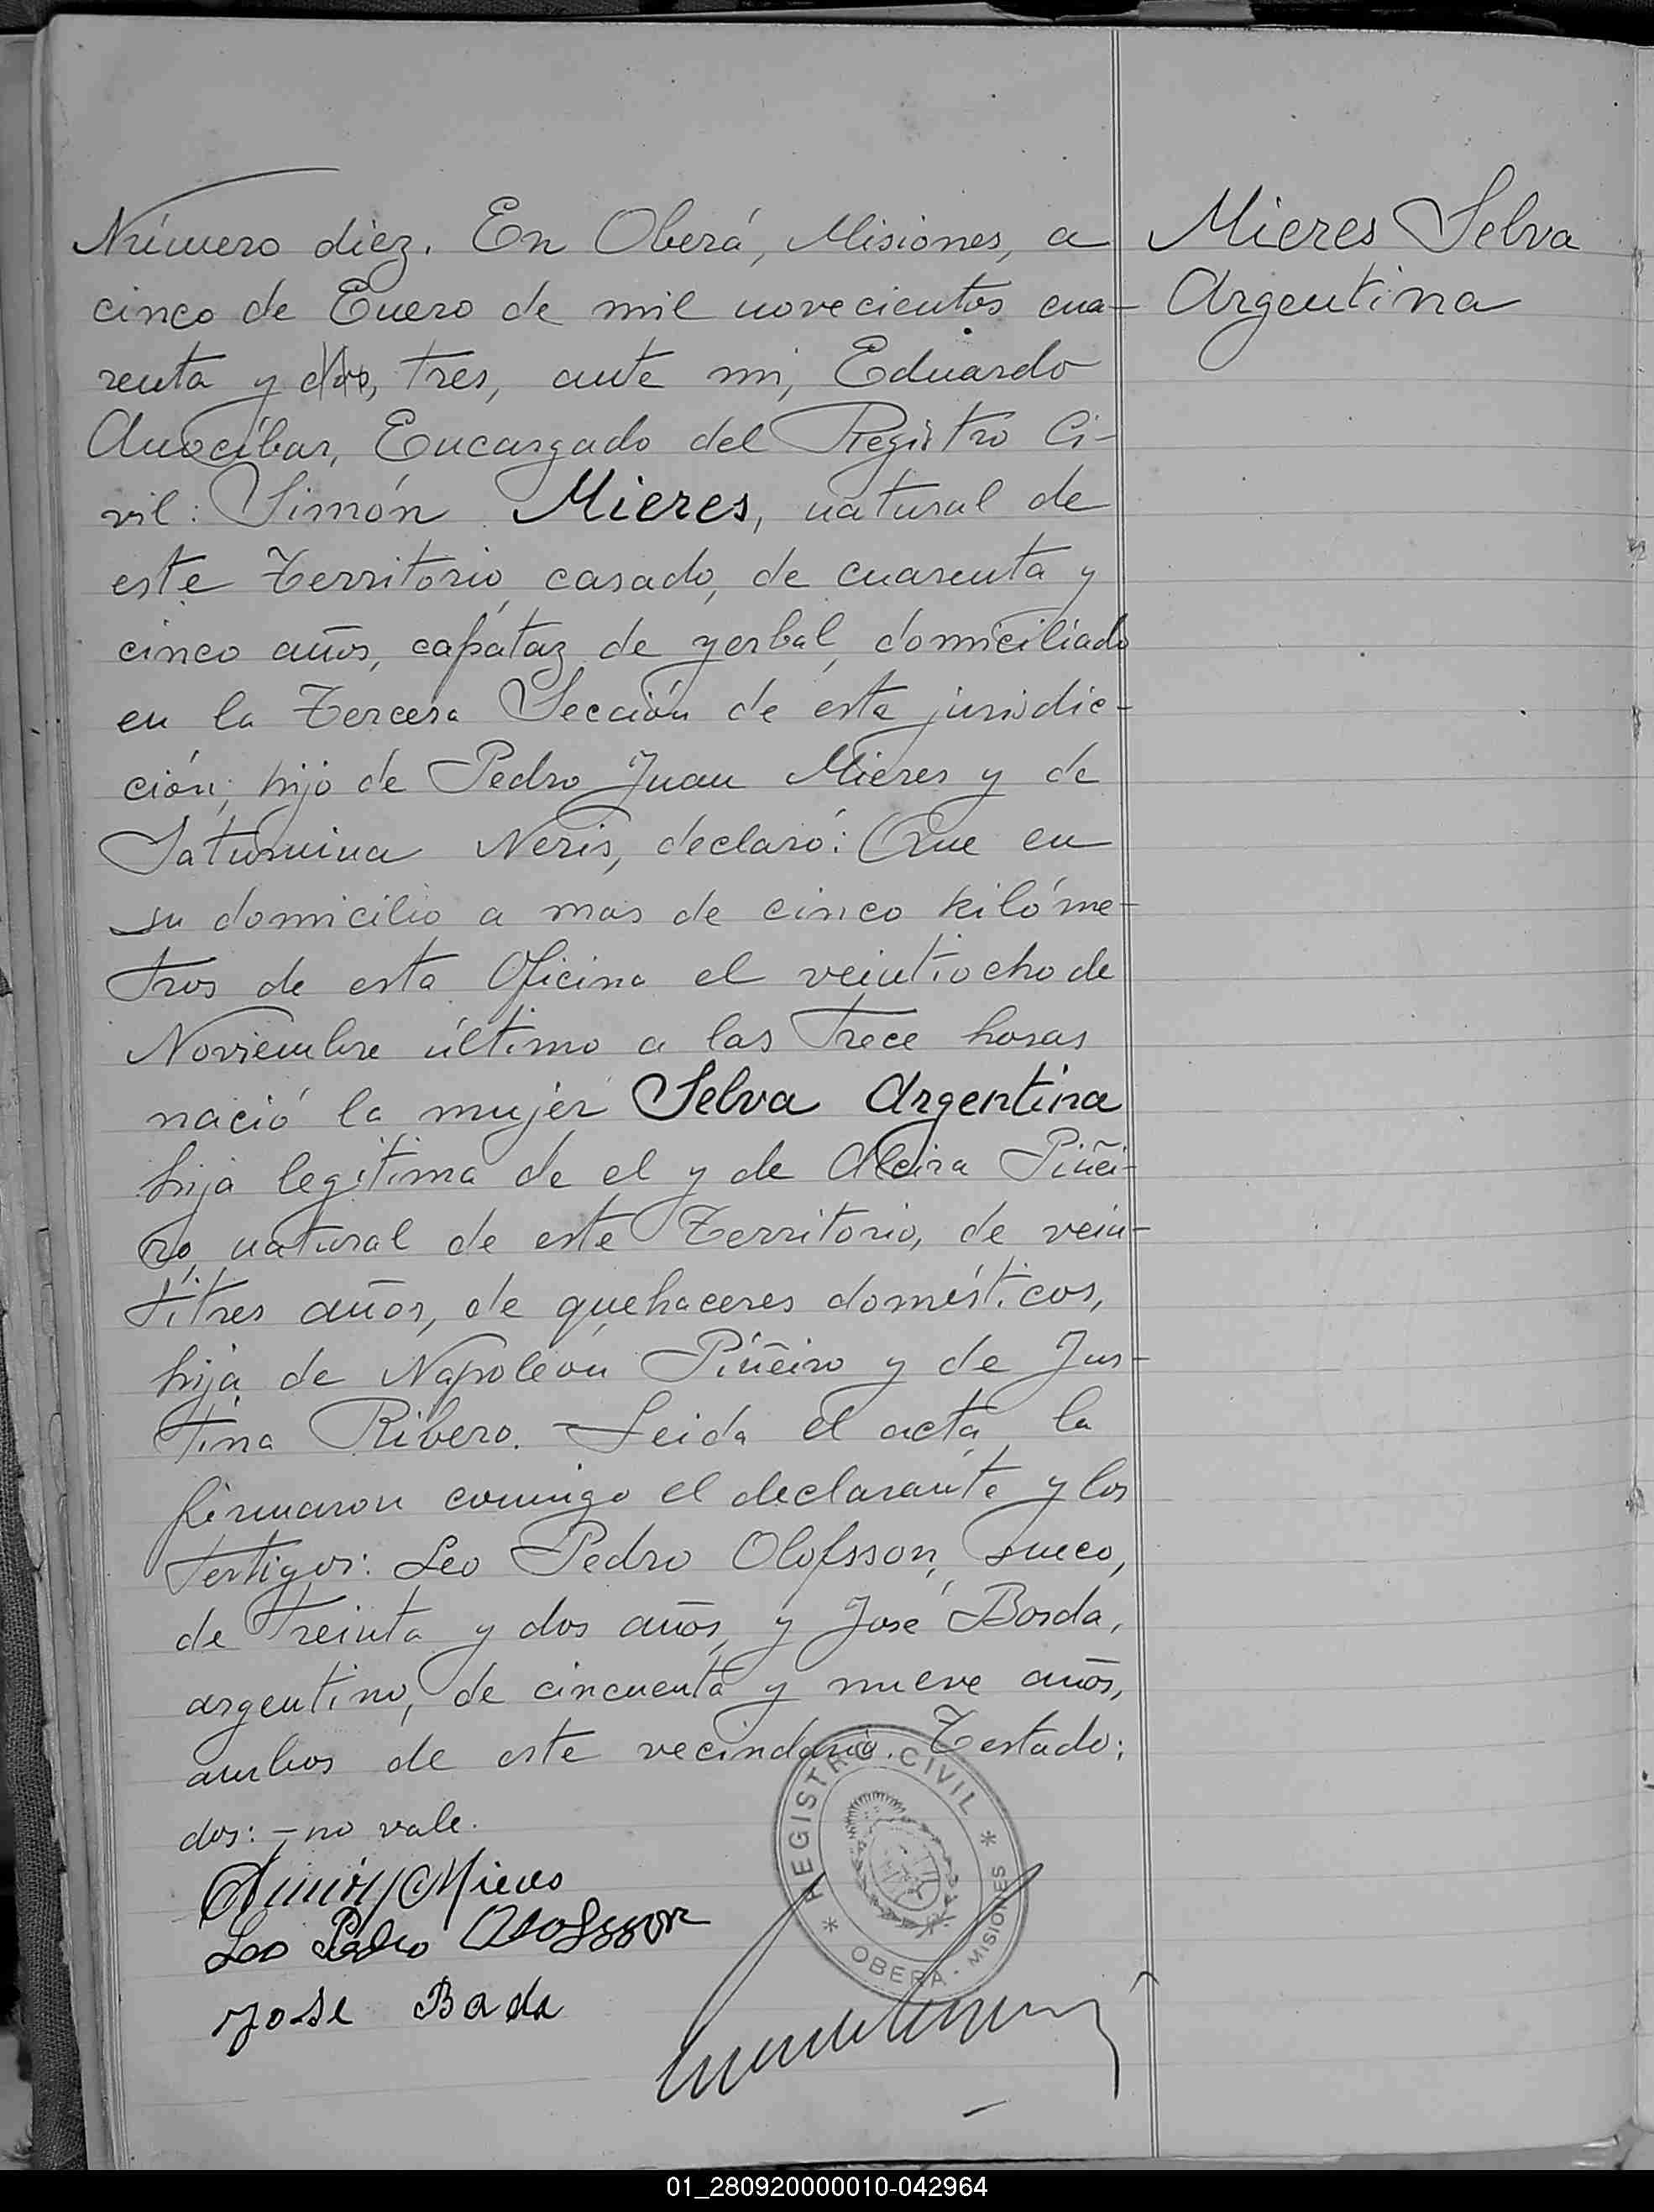 Número diez. En Oberá, Misiones, a
cinco de Enero de mil novecientos cua-
renta y dos, tres, ante mi, Eduardo
Anocíbar, Encargado del Registro Ci-
vil: Simón Mieres, natural de
este Territorio, casado, de cuarenta y
cinco años, capataz de yerbal, domiciliado
en la Tercera Sección de esta jurisdic-
ción; hijo de Pedro Juan Mieres y de
Saturnina Neris, declaró: Que en
su domicilio a mas de cinco kilóme-
tros de esta Oficina el veintiocho de
Noviembre último a las trece horas
nació la mujer Selva Argentina
hija legítima de el y de Alcira Piñei-
ro, natural de este Territorio, de vein-
titres años, de quehaceres domésticos,
hija de Napoleón Piñeiro y de Jus-
tina Ribero. Leida el acta, la
firmaron conmigo el declarante y los
testigos: Leo Pedro Olofsson, sueco,
de treinta y dos años, y José Borda,
argentino, de cincuenta y nueve años,
ambos de este vecindario. Testado:
dos: - no vale.
Simón Mieres
Leo Pedro Olofsson
Jose Bada
Mieres Selva
Argentina
REGISTRO CIVIL
* OBERA - MISIONES *
01_280920000010-042964